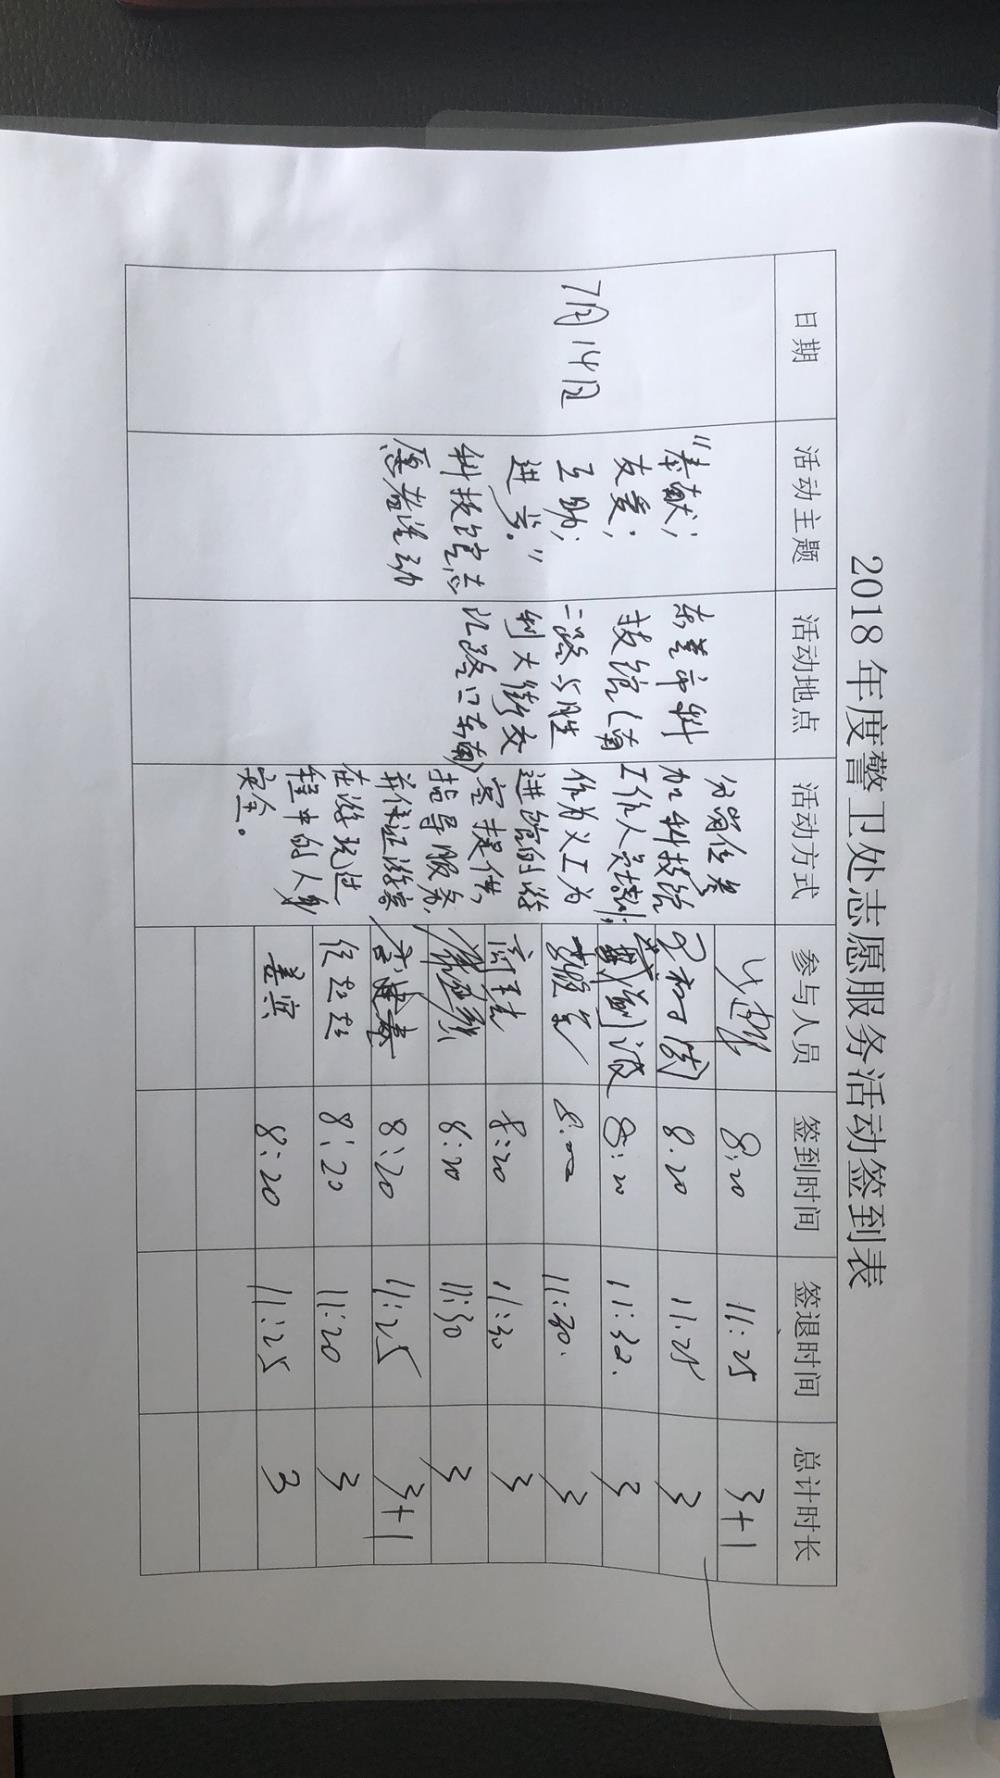 2018年度警卫处志愿服务活动签到表
日期 活动主题 活动地点 活动方式 参与人员 签到时间 签退时间 总计时长
7月14日
“奉献；
友爱；
互助；
进步。”
科技馆志
愿者活动
东莞市科
技馆(南
二路与胜
利大街交
汇路口东南)
分岗位参
加科技馆
工作人员培训；
作为义工为
进馆的游
客提供，
指导服务，
并保证游客
在游玩过
程中的人身
安全。
8:20 11:25 3+1
8:20 11:25 3
8:20 11:30. 3
8:00 11:30. 3
8:20 11:30 3
8:20 11:30 3
8:20 11:25 3+1
任赵赵 8:20 11:20 3
姜宾 8:20 11:25 3